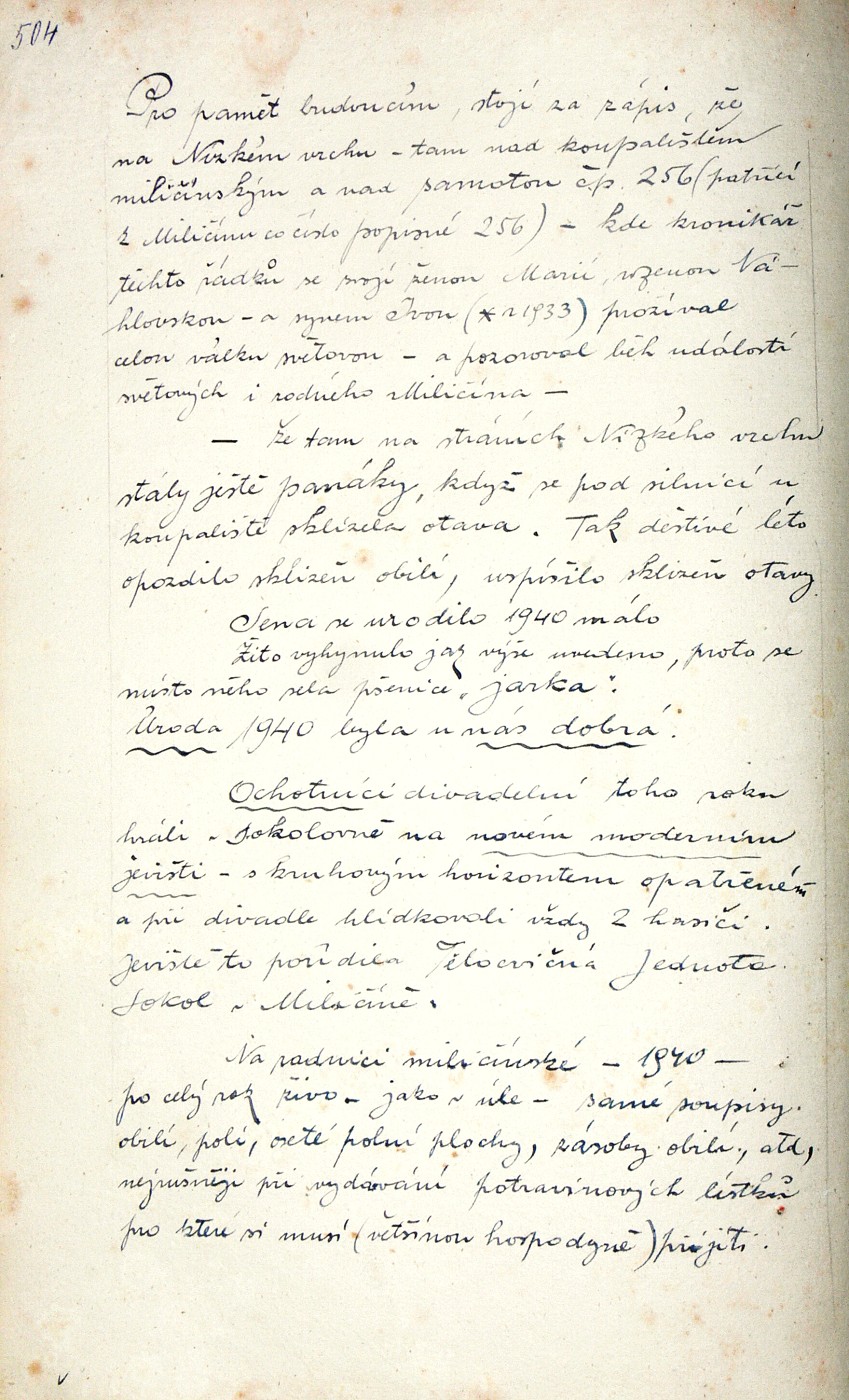 504
Pro pamět budoucím, stojí za zápis, že
na Nízkém vrchu – tam nad koupalištěm
miličínským a nad samotou čp. 256 (patřící
k Miličínu co číslo popisné 256) – kde kronikář
těchto řádků se svojí ženou Marií, rozenou Ná-
hlovskou – a synem Ivou (* r 1933) prožíval
celou válku světovou – a pozoroval běh událostí
světových i rodného Miličína –
– že tam na stráních Nízkého vrchu
stály ještě panáky, když se pod silnicí u
koupaliště sklízela otava. Tak deštivé léto
opozdilo sklizeň obilí, uspíšilo sklizeň otavy.
Sena se urodilo 1940 málo
Žito vyhynulo jak výše uvedeno, proto se
místo něho sela pšenice „jarka".
Úroda 1940 byla u nás dobrá.
Ochotníci divadelní toho roku
hráli v Sokolovně na novém moderním
jevišti – s kruhovým horizontem opatřeném
a při divadle hlídkovali vždy 2 hasiči.
Jeviště to pořídila Tělocvičná Jednota
Sokol v Miličíně.
Na radnici miličínské – 1940 –
po celý rok živo – jako v úle – samé soupisy
obilí, polí, oseté polní plochy, zásoby obilí, atd,
nejrušněji při vydávání potravinových lístků
pro které si musí (většinou hospodyně) přijíti.